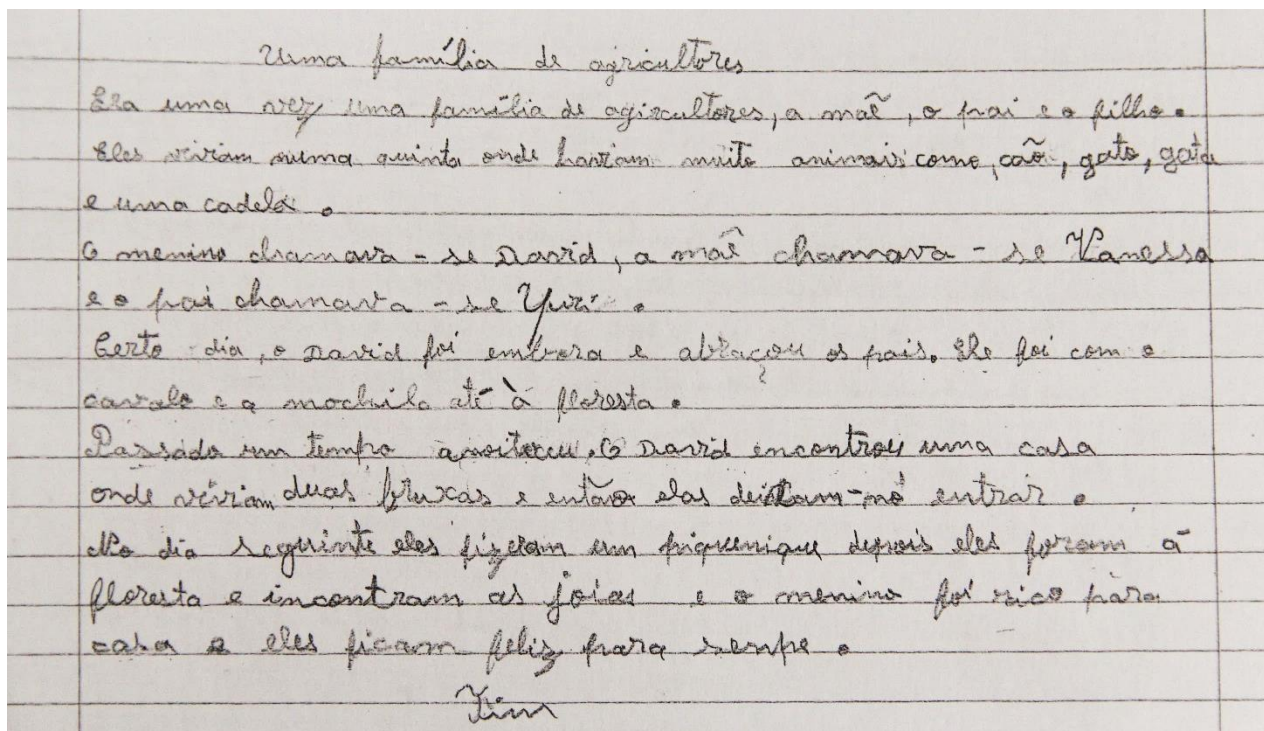 Uma família de agricultores
Era uma vez uma família de agircultores, a mãe, o pai e o filho.
Eles viviam numa quinta onde haviam muito animais como, caõ, gato, gata
e uma cadela.
O menino chamava - se David, a mãe chamava - se Vanessa
e o pai chamava - se Yuri.
Certo dia, o David foi embora e abraçou os pais. Ele foi com o
cavalo e a mochila até à floresta.
Passado um tempo anoiteceu. O David encontrou uma casa
onde viviam duas bruxas e então elas entrar.
No dia seguinte eles fizeram um piquenique depois eles foram á
floresta e incontram as joias e o menino foi rico para
casa e eles ficam feliz para senpe.
Fim